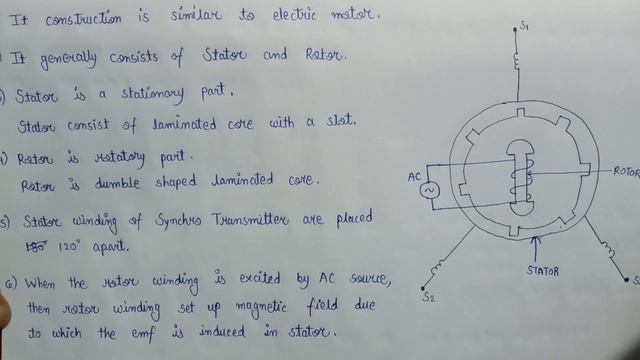 It construction is similar to electric motor.
It generally consists of Stator and Rotor.
Stator is a stationary part.
Stator consist of laminated core with a slot.
4) Rotor is rotatory part.
Rotor is dumble shaped laminated core.
5) Stator winding of Synchro Transmitter are placed
180° 120° apart.
6) When the rotor winding is excited by AC source,
then rotor winding set up magnetic field due
to which the emf is induced in stator.
S1
AC
ROTOR
STATOR
S2